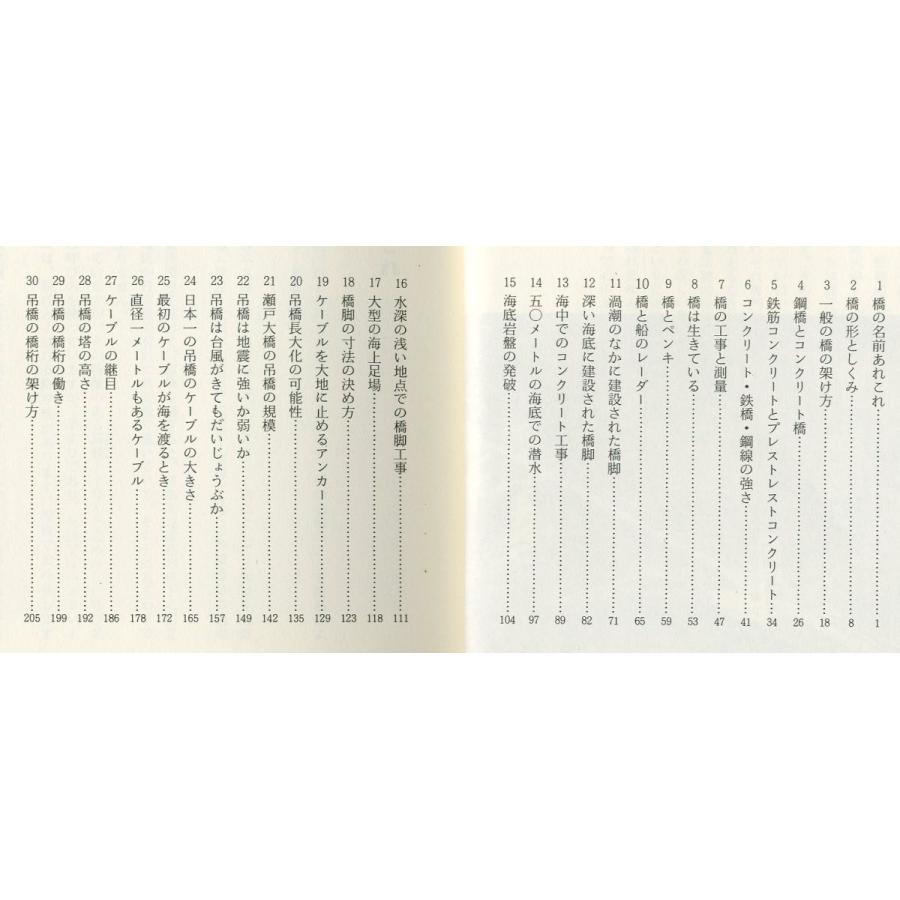 1 橋の名前あれこれ……1
2 橋の形としくみ……8
3 一般の橋の架け方……18
4 鋼橋とコンクリート橋……26
5 鉄筋コンクリートとプレストレストコンクリート……34
6 コンクリート・鉄橋・鋼線の強さ……41
7 橋の工事と測量……47
8 橋は生きている……53
9 橋とペンキ……59
10 橋と船のレーダー……65
11 渦潮のなかに建設された橋脚……71
12 深い海底に建設された橋脚……82
13 海中でのコンクリート工事……89
14 五〇メートルの海底での潜水……97
15 海底岩盤の発破……104
16 水深の浅い地点での橋脚工事……111
17 大型の海上足場……118
18 橋脚の寸法の決め方……123
19 ケーブルを大地に止めるアンカー……129
20 吊橋長大化の可能性……135
21 瀬戸大橋の吊橋の規模……142
22 吊橋は地震に強いか弱いか……149
23 吊橋は台風がきてもだいじょうぶか……157
24 日本一の吊橋のケーブルの大きさ……165
25 最初のケーブルが海を渡るとき……172
26 直径一メートルもあるケーブル……178
27 ケーブルの継目……186
28 吊橋の塔の高さ……192
29 吊橋の橋桁の働き……199
30 吊橋の橋桁の架け方……205